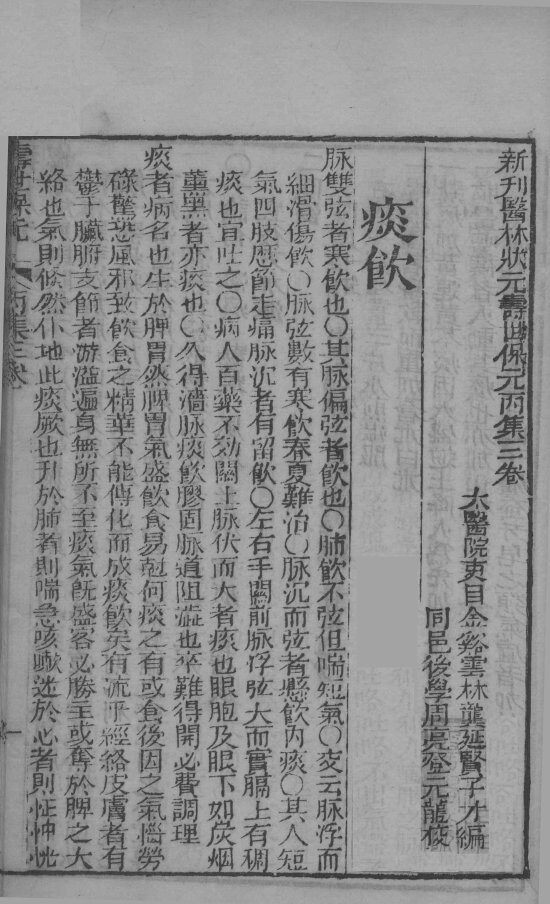 新刊醫林狀元壽世保元丙集三卷
太醫院吏目金谿雲林龔延賢子才編
同邑後學周亮登元龍校
痰飲
脉雙弦者寒飲也○其脉偏弦者飲也○肺飲不弦但喘短氣○又云脉浮而
細滑傷飲○脉弦數有寒飲春夏難治○脉沉而弦者懸飲內痰○其人短
氣四肢歷節走痛脉沉者有留飲○左右手關前脉浮弦大而實膈上有稠
痰也宜吐之○病人百藥不効關上脉伏而大者痰也眼胞及眼下如炭烟
薰黑者亦痰也○久得濇脉痰飲膠固脉道阻澁也卒難得開必費調理
痰者病名也生於脾胃然脾胃氣盛飲食易尅何痰之有或食後因之氣惱勞
碌驚恐風邪致飲食之精華不能傳化而成痰飲矣有流乎經絡皮膚者有
鬱于臟腑支節者游溢遍身無所不至痰氣既盛客必勝主或奪於脾之大
絡也氣則倏然仆地此痰厥也升於肺者則喘急咳嗽迷於心者則怔忡恍
壽世保元
丙集三卷
一